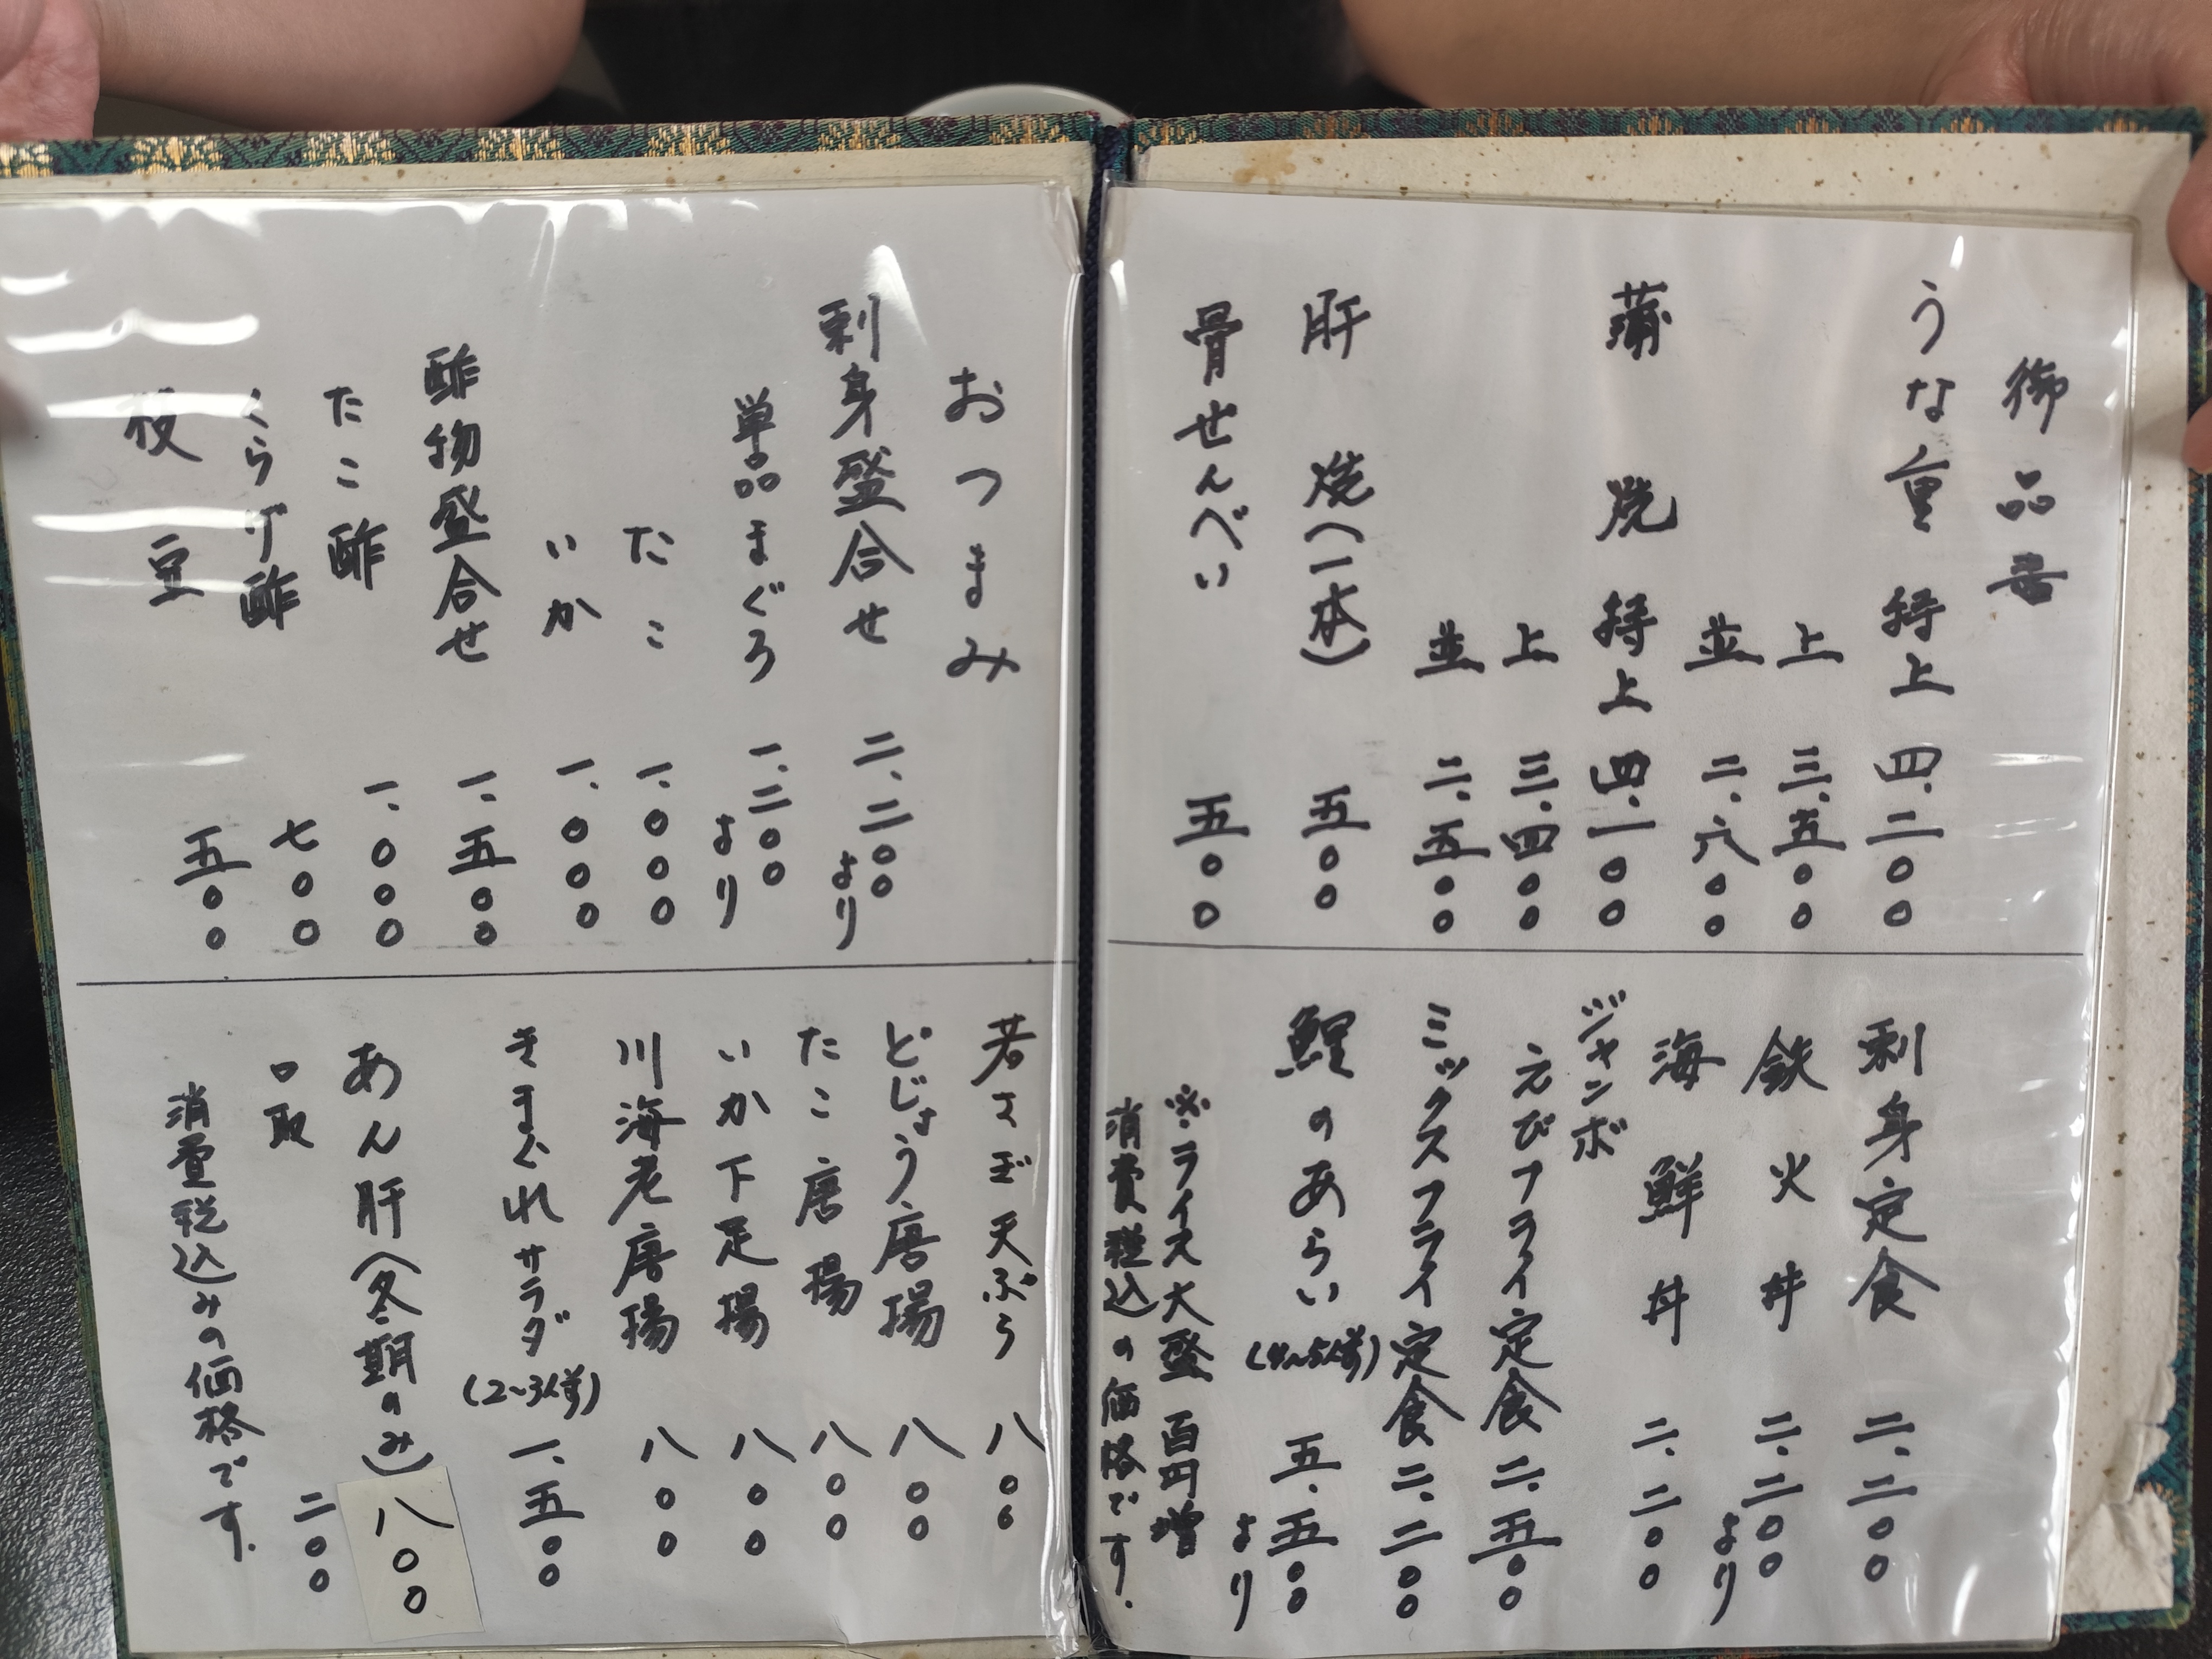 御品書
うな重 特上 四.二〇〇
上 三.五〇〇
並 二.六〇〇
蒲焼 特上 四.一〇〇
上 三.四〇〇
並 二.五〇〇
肝焼(一本) 五〇〇
骨せんべい 五〇〇
刺身定食 二.二〇〇
鉄火丼 二.二〇〇より
海鮮丼 二.二〇〇
ジャンボ
えびフライ定食 二.五〇〇
ミックスフライ定食 二.二〇〇
鯉のあらい(4~5人前) 五.五〇〇より
※ライス大盛 百円増
消費税込の価格です.
おつまみ
刺身盛合せ 二.二〇〇より
単品まぐろ 一.二〇〇より
たこ 一.〇〇〇
いか 一.〇〇〇
酢物盛合せ 一.五〇〇
たこ酢 一.〇〇〇
くらげ酢 七〇〇
枝豆 五〇〇
若さぎ天ぷら 八〇〇
どじょう唐揚 八〇〇
たこ唐揚 八〇〇
いか下足揚 八〇〇
川海老唐揚 八〇〇
きまぐれサラダ(2~3人前) 一.五〇〇
あん肝(冬期のみ) 八〇〇
口取 二〇〇
消費税込みの価格です.